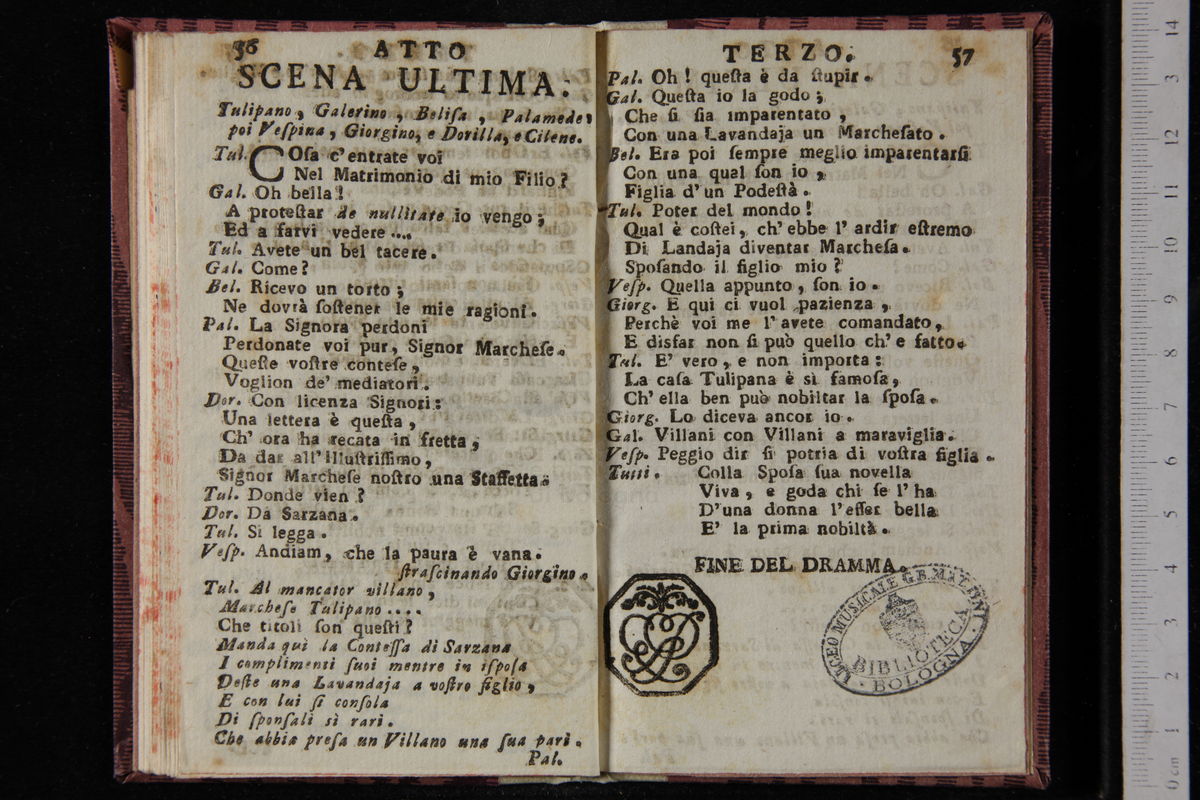 56 ATTO
SCENA ULTIMA.
Tulipano, Galerino, Belisa, Palamede,
poi Vespina, Giorgino, e Dorilla, e Cilene.
Tul. COsa c'entrate voi
Nel Matrimonio di mio Filio?
Gal. Oh bella!
A protestar de nullitate io vengo;
Ed a farvi vedere ....
Tul. Avete un bel tacere.
Gal. Come?
Bel. Ricevo un torto;
Ne dovrà sostener le mie ragioni.
Pal. La Signora perdoni
Perdonate voi pur, Signor Marchese.
Queste vostre contese,
Voglion de' mediatori.
Dor. Con licenza Signori:
Una lettera è questa,
Ch' ora ha recata in fretta,
Da dar all'illustrissimo,
Signor Marchese nostro una Staffetta.
Tul. Donde vien?
Dor. Da Sarzana.
Tul. Si legga.
Vesp. Andiam, che la paura è vana.
strascinando Giorgino.
Tul. Al mancator villano,
Marchese Tulipano ....
Che titoli son questi?
Manda quì la Contessa di Sarzana
I complimenti suoi mentre in isposa
Deste una Lavandaja a vostro figlio,
E con lui si consola
Di sponsali sì rari.
Che abbia presa un Villano una sua pari.
Pal.
TERZO. 57
Pal. Oh! questa è da stupir.
Gal. Questa io la godo;
Che si sia imparentato,
Con una Lavandaja un Marchesato.
Bel. Era poi sempre meglio imparentarsi
Con una qual son io,
Figlia d'un Podestà.
Tul. Poter del mondo!
Qual è costei, ch'ebbe l' ardir estremo
Di Landaja diventar Marchesa.
Sposando il figlio mio?
Vesp. Quella appunto, son io.
Giorg. E qui ci vuol pazienza,
Perchè voi me l'avete comandato,
E disfar non si può quello ch'e fatto.
Tul. E' vero, e non importa:
La casa Tulipana è sì famosa,
Ch' ella ben può nobiltar la sposa.
Giorg. Lo diceva ancor io.
Gal. Villani con Villani a maraviglia.
Vesp. Peggio dir si potria di vostra figlia.
Tutti. Colla Sposa sua novella
Viva, e goda chi se l' ha
D'una donna l'esser bella
E' la prima nobiltà.
FINE DEL DRAMMA.
LICEO MUSICALE G.B. MARTINI
BIBLIOTECA
BOLOGNA
14
13
12
11
10
9
8
7
6
5
4
3
2
1
0 cm